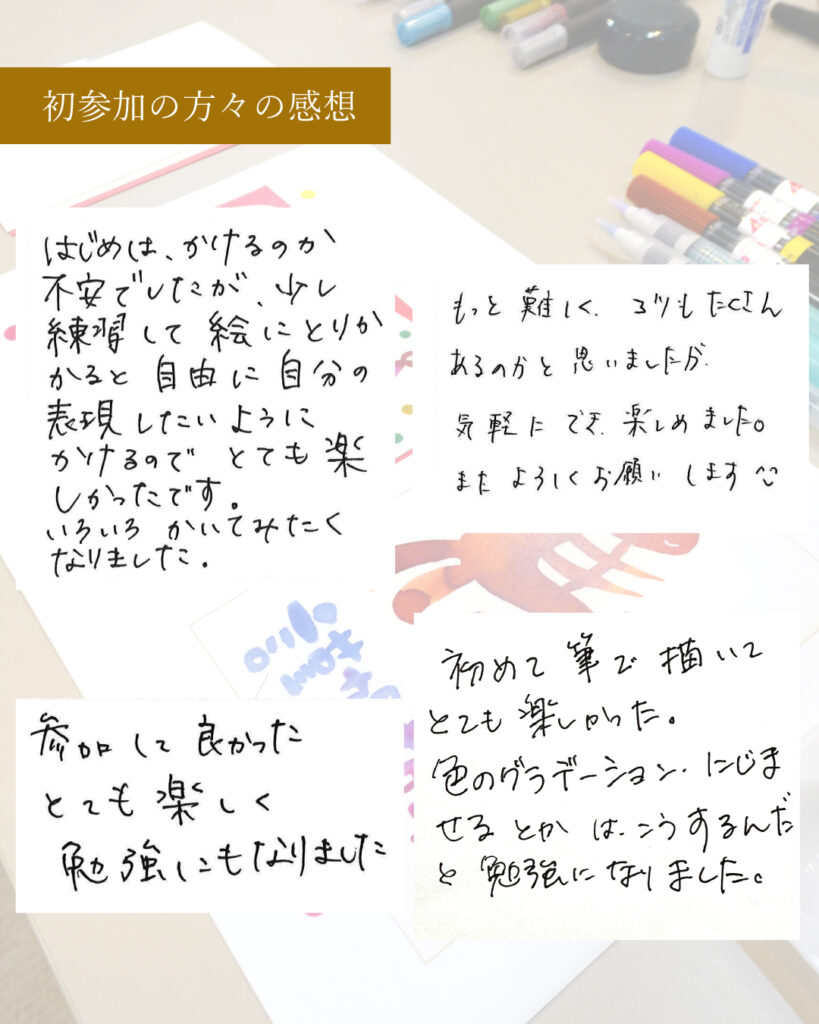 初参加の方々の感想
はじめは、かけるのか
不安でしたが、少し
練習して絵にとりか
かると自由に自分の
表現したいように
かけるので とても楽
しかったです。
いろいろ かいてみたく
なりました。
もっと難しく、コツもたくさん
あるのかと思いましたが、
気軽にでき、楽しめました。
またよろしくお願いします
参加して良かった
とても楽しく
勉強にもなりました
初めて筆で描いて
とても楽しかった。
色のグラデーション、にじま
せるとかは、こうするんだ
と勉強になりました。